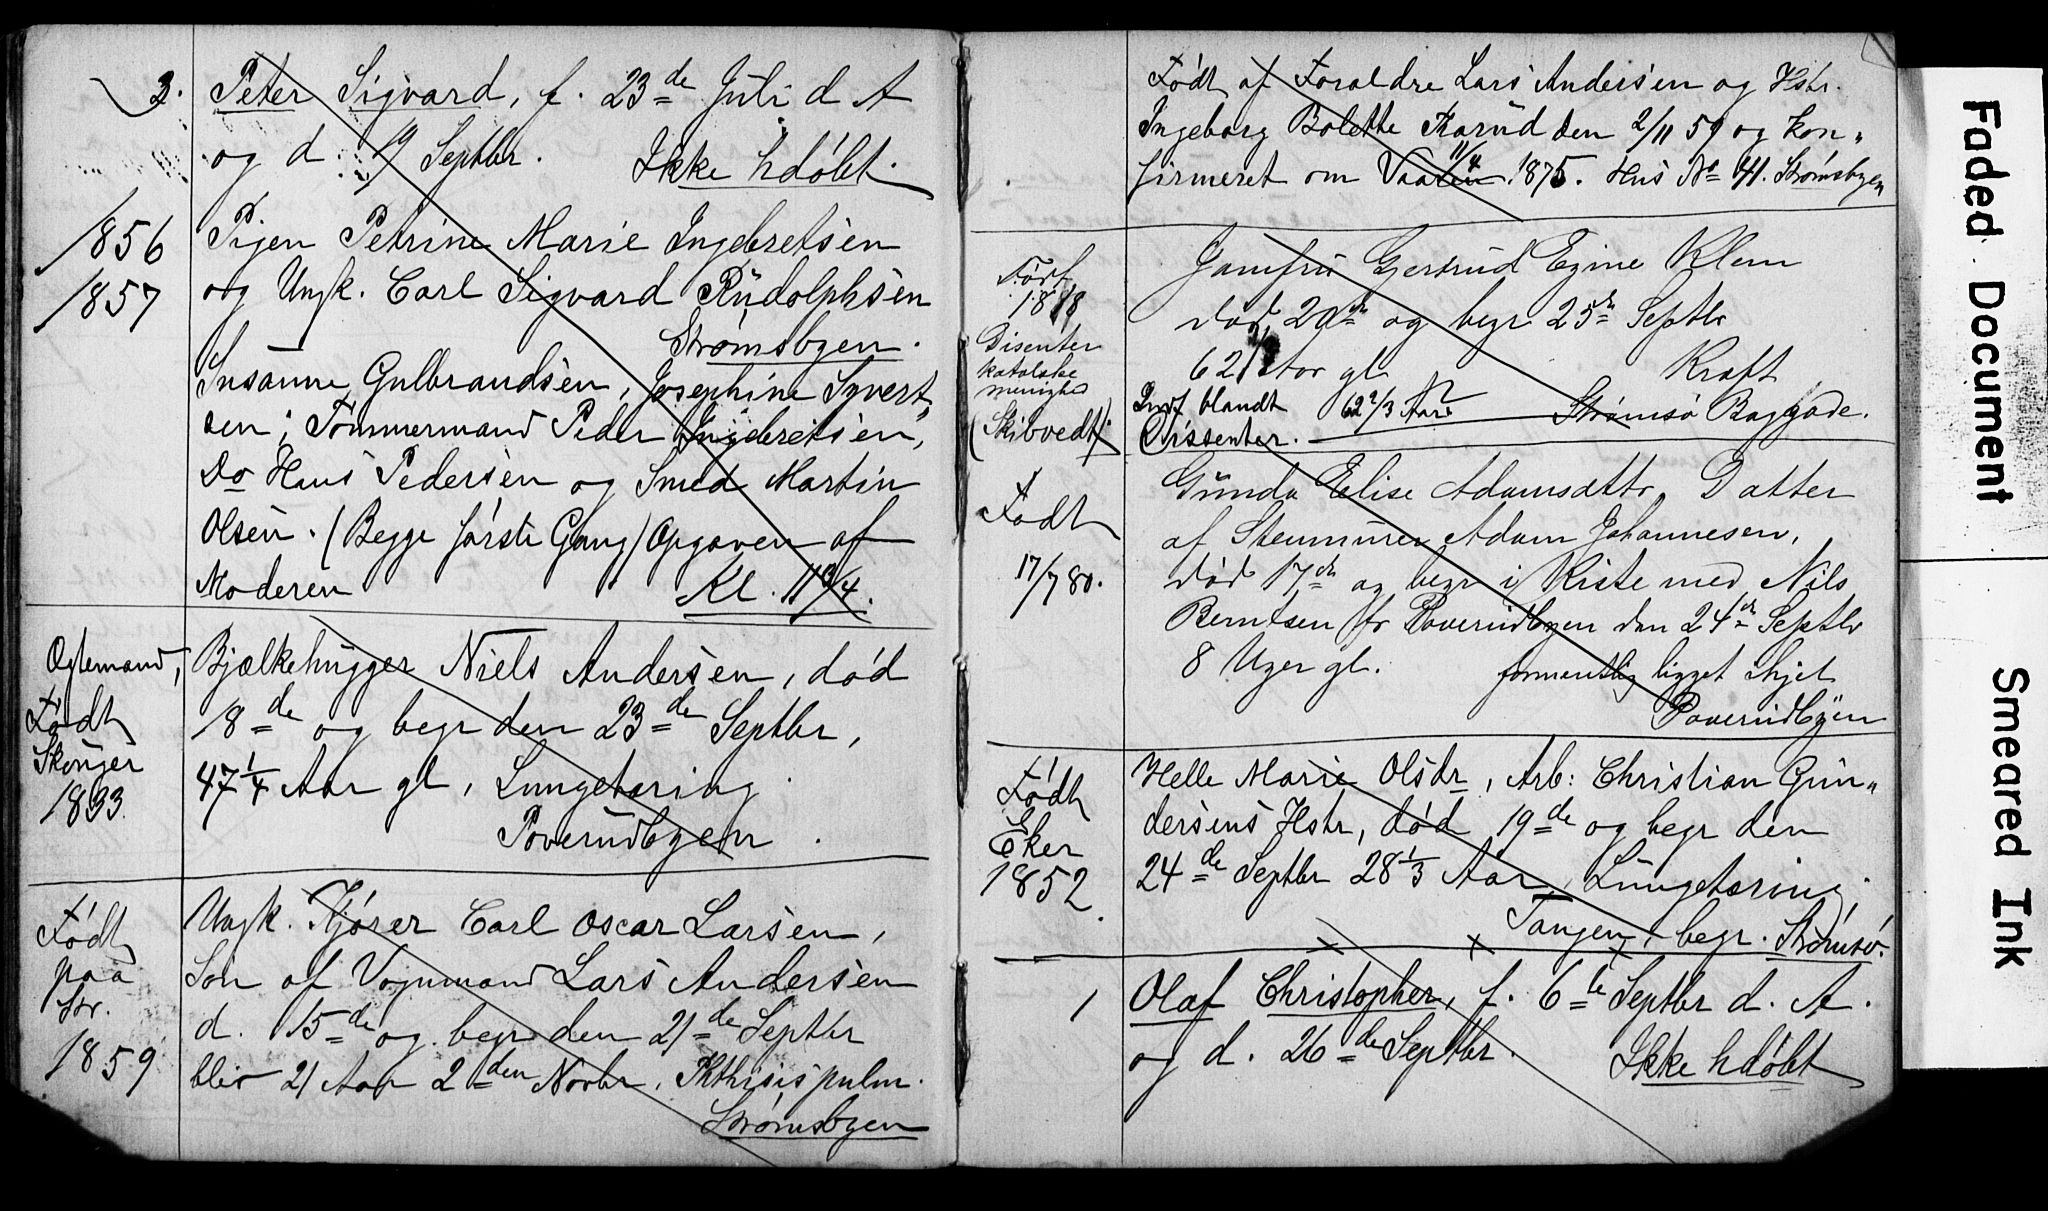 3. Peter Sigvard, f. 23de Juli d A
og d. 19 Septbr. Ikke hdøbt.
1856 Pigen Petrine Marie Ingebretsen
1857 og Ungk. Carl Sigvard Rudolphsen
Strømsbyen.
Susanne Gulbrandsen, Josephine Syvert„
sen; Tømmermand Peder Ingebretsen,
Do Hans Pedersen og Smed Martin
Olsen. (Begge første Gang) Opgaven af
Moderen Kl. 11 3/4.
Ogtemand,
Født
Skouger
1833.
Bjælkehugger Niels Andersen, død
18de og begr den 23de Septbr,
47 1/4 Aar gl, Lungetæring.
Poverudbyen.
Født
paa
Str.
1859
Ungk. Kjører Carl Oscar Larsen,
Søn af Vognmand Lars Andersen
d. 15de og begr den 21de Septbr
blev 21 Aar 2den Novbr, Phthisis pulm.
Strømsbyen
Født af Foraldre Lars Andersen og Hstr.
Ingeborg Bolette Korud den 2/11 59 og kon„
firmeret om Vaaren 11/4 1875. Hus No 41. Strømsbyen
Født
1818
Disenter
katolske
menighed
(Skibvedt)
Jomfru Gjertrud Egine Klem
død 20de og begr 25de Septbr
62 Aar gl Kræft
Indf blandt 62 2/3 Aar Strømsø Baggade.
Dissenter.
Født
17/7 80.
Gunda Elise Adamsdttr, Datter
af Stenmurer Adam Johannesen,
død 17de og begr i Kiste med Nils
Berntsen fr Poverudbyen den 24de Septbr
8 Uger gl. formentlig ligget ihjel
Poverudbyen
Født
Eker
1852.
Helle Marie Olsdr, Arb: Christian Gun„
dersens Hstr, død 19de og begr den
24de Septbr 28 1/3 Aar, Lungetæring.
Tangen, begr. Strømsø.
1 Olaf Christopher, f. 6te Septbr d. A.
og d. 26de Septbr. Ikke hdøbt
Faded Document
Smeared Ink